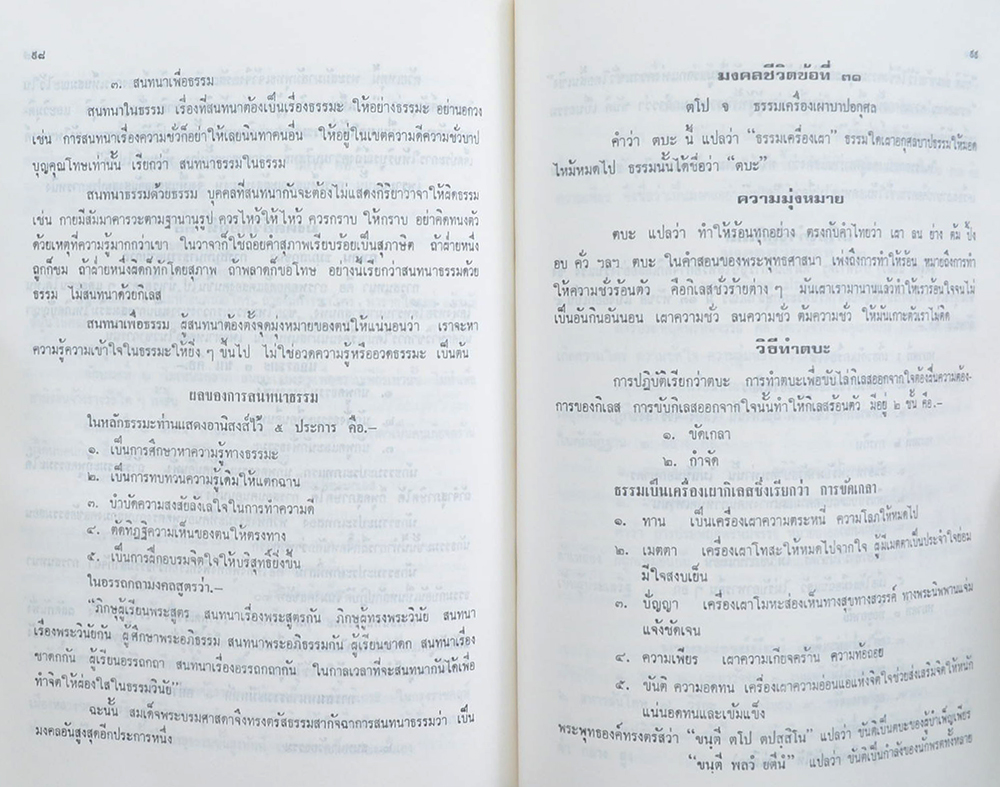 ๙๘
๓. สนทนาเพื่อธรรม
สนทนาในธรรม เรื่องที่สนทนาต้องเป็นเรื่องธรรมะ ให้อย่างธรรมะ อย่านอกวง
เช่น การสนทนาเรื่องความชั่วก็อย่าให้เลยนินทาคนอื่น ให้อยู่ในเขตความดีความชั่วบาป
บุญคุณโทษเท่านั้น เรียกว่า สนทนาธรรมในธรรม
สนทนาธรรมด้วยธรรม บุคคลที่สนทนากันจะต้องไม่แสดงกิริยาวาจาให้ผิดธรรม
เช่น กายมีสัมมาคารวะตามฐานานุรูป ควรไหว้ให้ไหว้ ควรกราบ ให้กราบ อย่าคิดทนงตัว
ด้วยเหตุที่ความรู้มากกว่าเขา ในวาจาก็ใช้ถ้อยคำสุภาพเรียบร้อยเป็นสุภาษิต ถ้าฝ่ายหนึ่ง
ถูกก็ชม ถ้าฝ่ายหนึ่งผิดก็ทักโดยสุภาพ ถ้าพลาดก็ขอโทษ อย่างนี้เรียกว่าสนทนาธรรมด้วย
ธรรม ไม่สนทนาด้วยกิเลส
สนทนาเพื่อธรรม ผู้สนทนาต้องตั้งจุดมุ่งหมายของตนให้แน่นอนว่า เราจะหา
ความรู้ความเข้าใจในธรรมะให้ยิ่ง ๆ ขึ้นไป ไม่ใช่อวดความรู้หรืออวดธรรมะ เป็นต้น
ผลของการสนทนาธรรม
ในหลักธรรมะท่านแสดงอานิสงส์ไว้ ๕ ประการ คือ.-
๑. เป็นการศึกษาหาความรู้ทางธรรมะ
๒. เป็นการทบทวนความรู้เดิมให้แตกฉาน
๓. บำบัดความสงสัยลังเลใจในการทำความดี
๔. ดัดทิฏฐิความเห็นของตนให้ตรงทาง
๕. เป็นการฝึกอบรมจิตใจให้บริสุทธิ์ยิ่งขึ้น
ในอรรถกถามงคลสูตรว่า.-
“ภิกษุผู้เรียนพระสูตร สนทนาเรื่องพระสูตรกัน ภิกษุผู้ทรงพระวินัย สนทนา
เรื่องพระวินัยกัน ผู้ศึกษาพระอภิธรรม สนทนาพระอภิธรรมกัน ผู้เรียนชาดก สนทนาเรื่อง
ชาดกกัน ผู้เรียนอรรถกถา สนทนาเรื่องอรรถกถากัน ในกาลเวลาที่จะสนทนากันได้เพื่อ
ทำจิตให้ผ่องใสในธรรมวินัย”
ฉะนั้น สมเด็จพระบรมศาสดาจึงทรงตรัสธรรมสากัจฉาการสนทนาธรรมว่า เป็น
มงคลอันสูงสุดอีกประการหนึ่ง
๙๙
มงคลชีวิตข้อที่ ๓๑
ตโป จ ธรรมเครื่องเผาบาปอกุศล
คำว่า ตบะ นี้ แปลว่า “ธรรมเครื่องเผา” ธรรมใดเผาอกุศลบาปธรรมให้มอด
ไหม้หมดไป ธรรมนั้นได้ชื่อว่า “ตบะ”
ความมุ่งหมาย
ตบะ แปลว่า ทำให้ร้อนทุกอย่าง ตรงกับคำไทยว่า เผา ลน ย่าง ต้ม ปิ้ง
อบ คั่ว ฯลฯ ตบะ ในคำสอนของพระพุทธศาสนา เพ่งถึงการทำให้ร้อน หมายถึงการทำ
ให้ความชั่วร้อนตัว คือกิเลสชั่วร้ายต่าง ๆ มันเผาเรามานานแล้วทำให้เราร้อนใจจนไม่
เป็นอันกินอันนอน เผาความชั่ว ลนความชั่ว ต้มความชั่ว ให้มันเกาะตัวเราไม่ติด
วิธีทำตบะ
การปฏิบัติเรียกว่าตบะ การทำตบะเพื่อขับไล่กิเลสออกจากใจต้องฝืนความต้อง-
การของกิเลส การขับกิเลสออกจากใจนั้นทำให้กิเลสร้อนตัว มีอยู่ ๒ ขั้น คือ.-
๑. ขัดเกลา
๒. กำจัด
ธรรมเป็นเครื่องเผากิเลสซึ่งเรียกว่า การขัดเกลา
๑. ทาน เป็นเครื่องเผาความตระหนี่ ความโลภให้หมดไป
๒. เมตตา เครื่องเผาโทสะให้หมดไปจากใจ ผู้มีเมตตาเป็นประจำใจย่อม
มีใจสงบเย็น
๓. ปัญญา เครื่องเผาโมหะส่องเห็นทางสุขทางสวรรค์ ทางพระนิพพานแจ่ม
แจ้งชัดเจน
๔. ความเพียร เผาความเกียจคร้าน ความท้อถอย
๕. ขันติ ความอดทน เครื่องเผาความอ่อนแอแห่งจิตใจช่วยส่งเสริมจิตให้หนัก
แน่นอดทนและเข้มแข็ง
พระพุทธองค์ทรงตรัสว่า “ขนฺตี ตโป ตปสฺสิโน” แปลว่า ขันติเป็นตบะของผู้บำเพ็ญเพียร
“ขนฺตี พลวํ ยตีนํ” แปลว่า ขันติเป็นกำลังของนักพรตทั้งหลาย